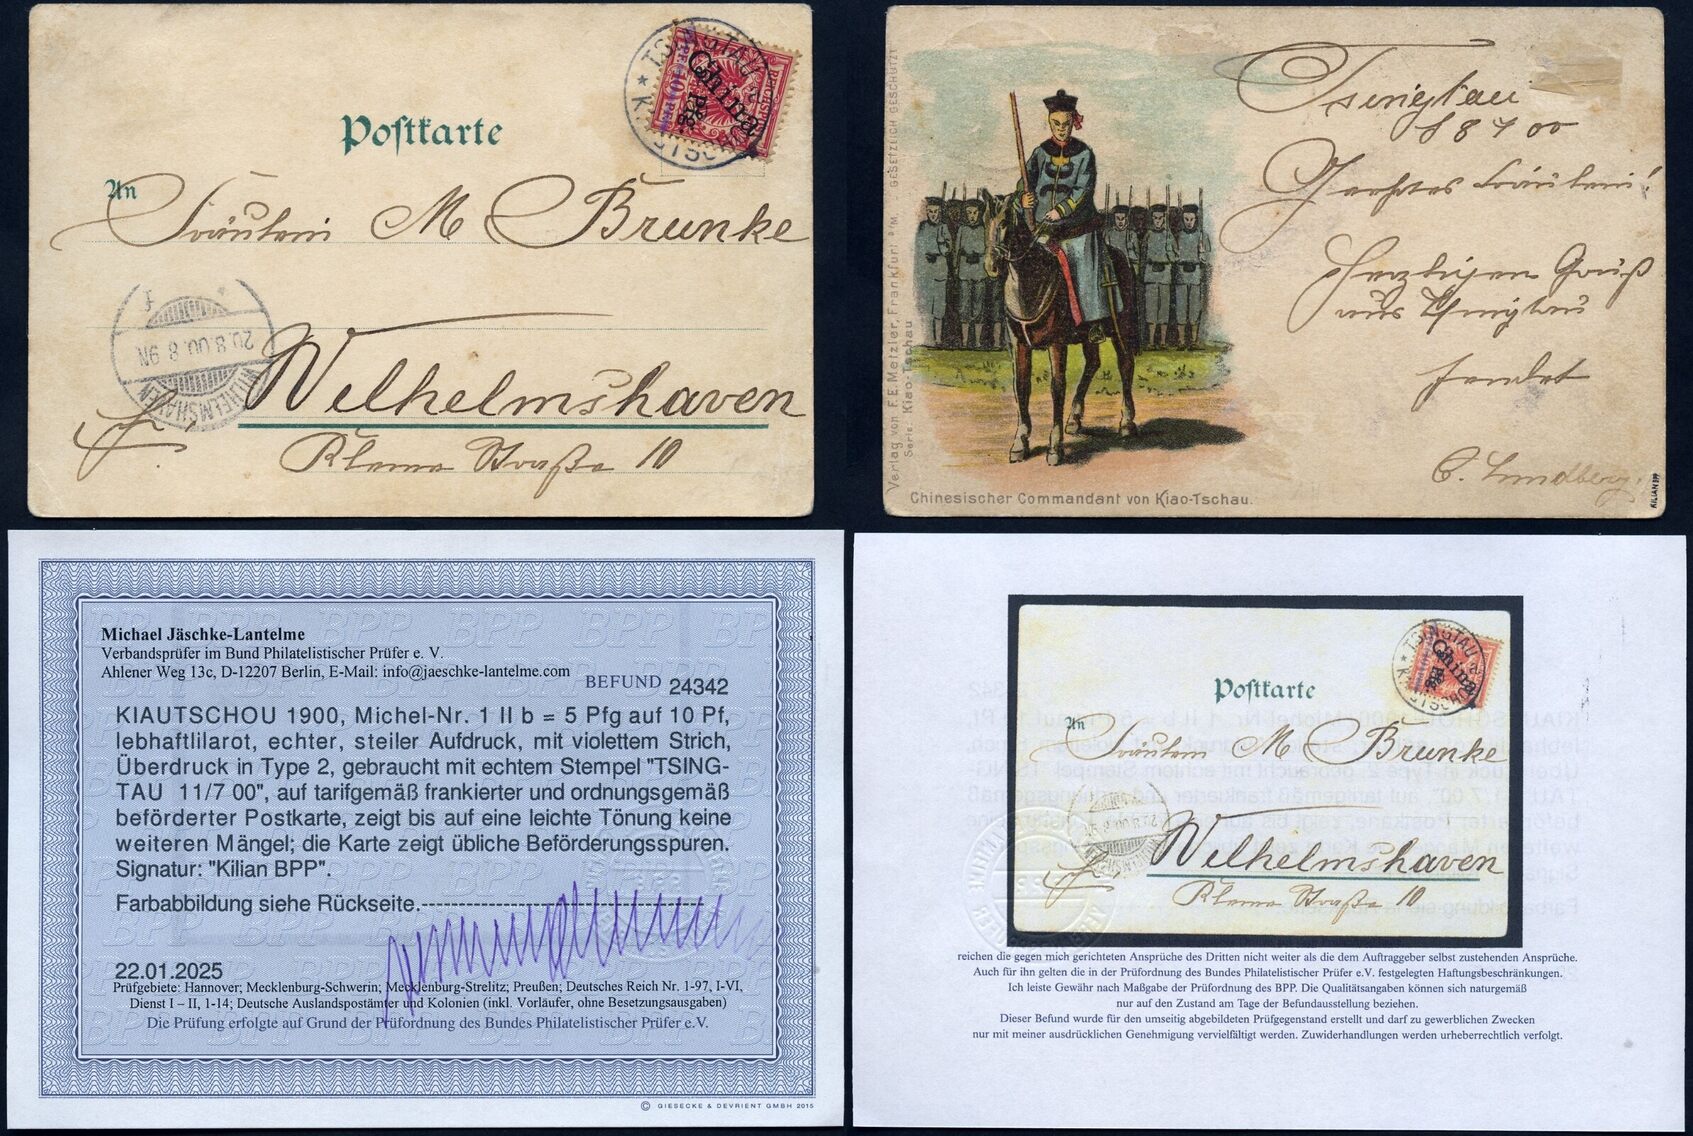 Postkarte
REICHSPOST
China
5 Pfg.
* TSINGTAU *
KIAUTSCHOU
An
Fräulein M Brunke
Wilhelmshaven
WILHELMSHAVEN
20.8.00. 8 9N
* F
Straße 10
Verlag von F.E. Metzler, Frankfurt a/M. GESETZLICH GESCHÜTZT
Serie. Kiao-Tschau
Chinesischer Commandant von Kiao-Tschau.
Tsingtau
Geehrtes Fräulein!
Herzlichen Gruß
aus Tsingtau
sendet
C. Lundberg.
KILIAN BPP
Michael Jäschke-Lantelme
Verbandsprüfer im Bund Philatelistischer Prüfer e. V.
Ahlener Weg 13c, D-12207 Berlin, E-Mail: info@jaeschke-lantelme.com
BEFUND 24342
KIAUTSCHOU 1900, Michel-Nr. 1 II b = 5 Pfg auf 10 Pf,
lebhaftlilarot, echter, steiler Aufdruck, mit violettem Strich,
Überdruck in Type 2, gebraucht mit echtem Stempel "TSING-
TAU 11/7 00", auf tarifgemäß frankierter und ordnungsgemäß
beförderter Postkarte, zeigt bis auf eine leichte Tönung keine
weiteren Mängel; die Karte zeigt übliche Beförderungsspuren.
Signatur: "Kilian BPP".
Farbabbildung siehe Rückseite.
22.01.2025
Prüfgebiete: Hannover; Mecklenburg-Schwerin; Mecklenburg-Strelitz; Preußen; Deutsches Reich Nr. 1-97, I-VI,
Dienst I – II, 1-14; Deutsche Auslandspostämter und Kolonien (inkl. Vorläufer, ohne Besetzungsausgaben)
Die Prüfung erfolgte auf Grund der Prüfordnung des Bundes Philatelistischer Prüfer e.V.
© GIESECKE & DEVRIENT GMBH 2015
Postkarte
China
* TSINGTAU
An
Fräulein M Brunke
Wilhelmshaven
Straße 10
reichen die gegen mich gerichteten Ansprüche des Dritten nicht weiter als die dem Auftraggeber selbst zustehenden Ansprüche.
Auch für ihn gelten die in der Prüfordnung des Bundes Philatelistischer Prüfer e.V. festgelegten Haftungsbeschränkungen.
Ich leiste Gewähr nach Maßgabe der Prüfordnung des BPP. Die Qualitätsangaben können sich naturgemäß
nur auf den Zustand am Tage der Befundausstellung beziehen.
Dieser Befund wurde für den umseitig abgebildeten Prüfgegenstand erstellt und darf zu gewerblichen Zwecken
nur mit meiner ausdrücklichen Genehmigung vervielfältigt werden. Zuwiderhandlungen werden urheberrechtlich verfolgt.